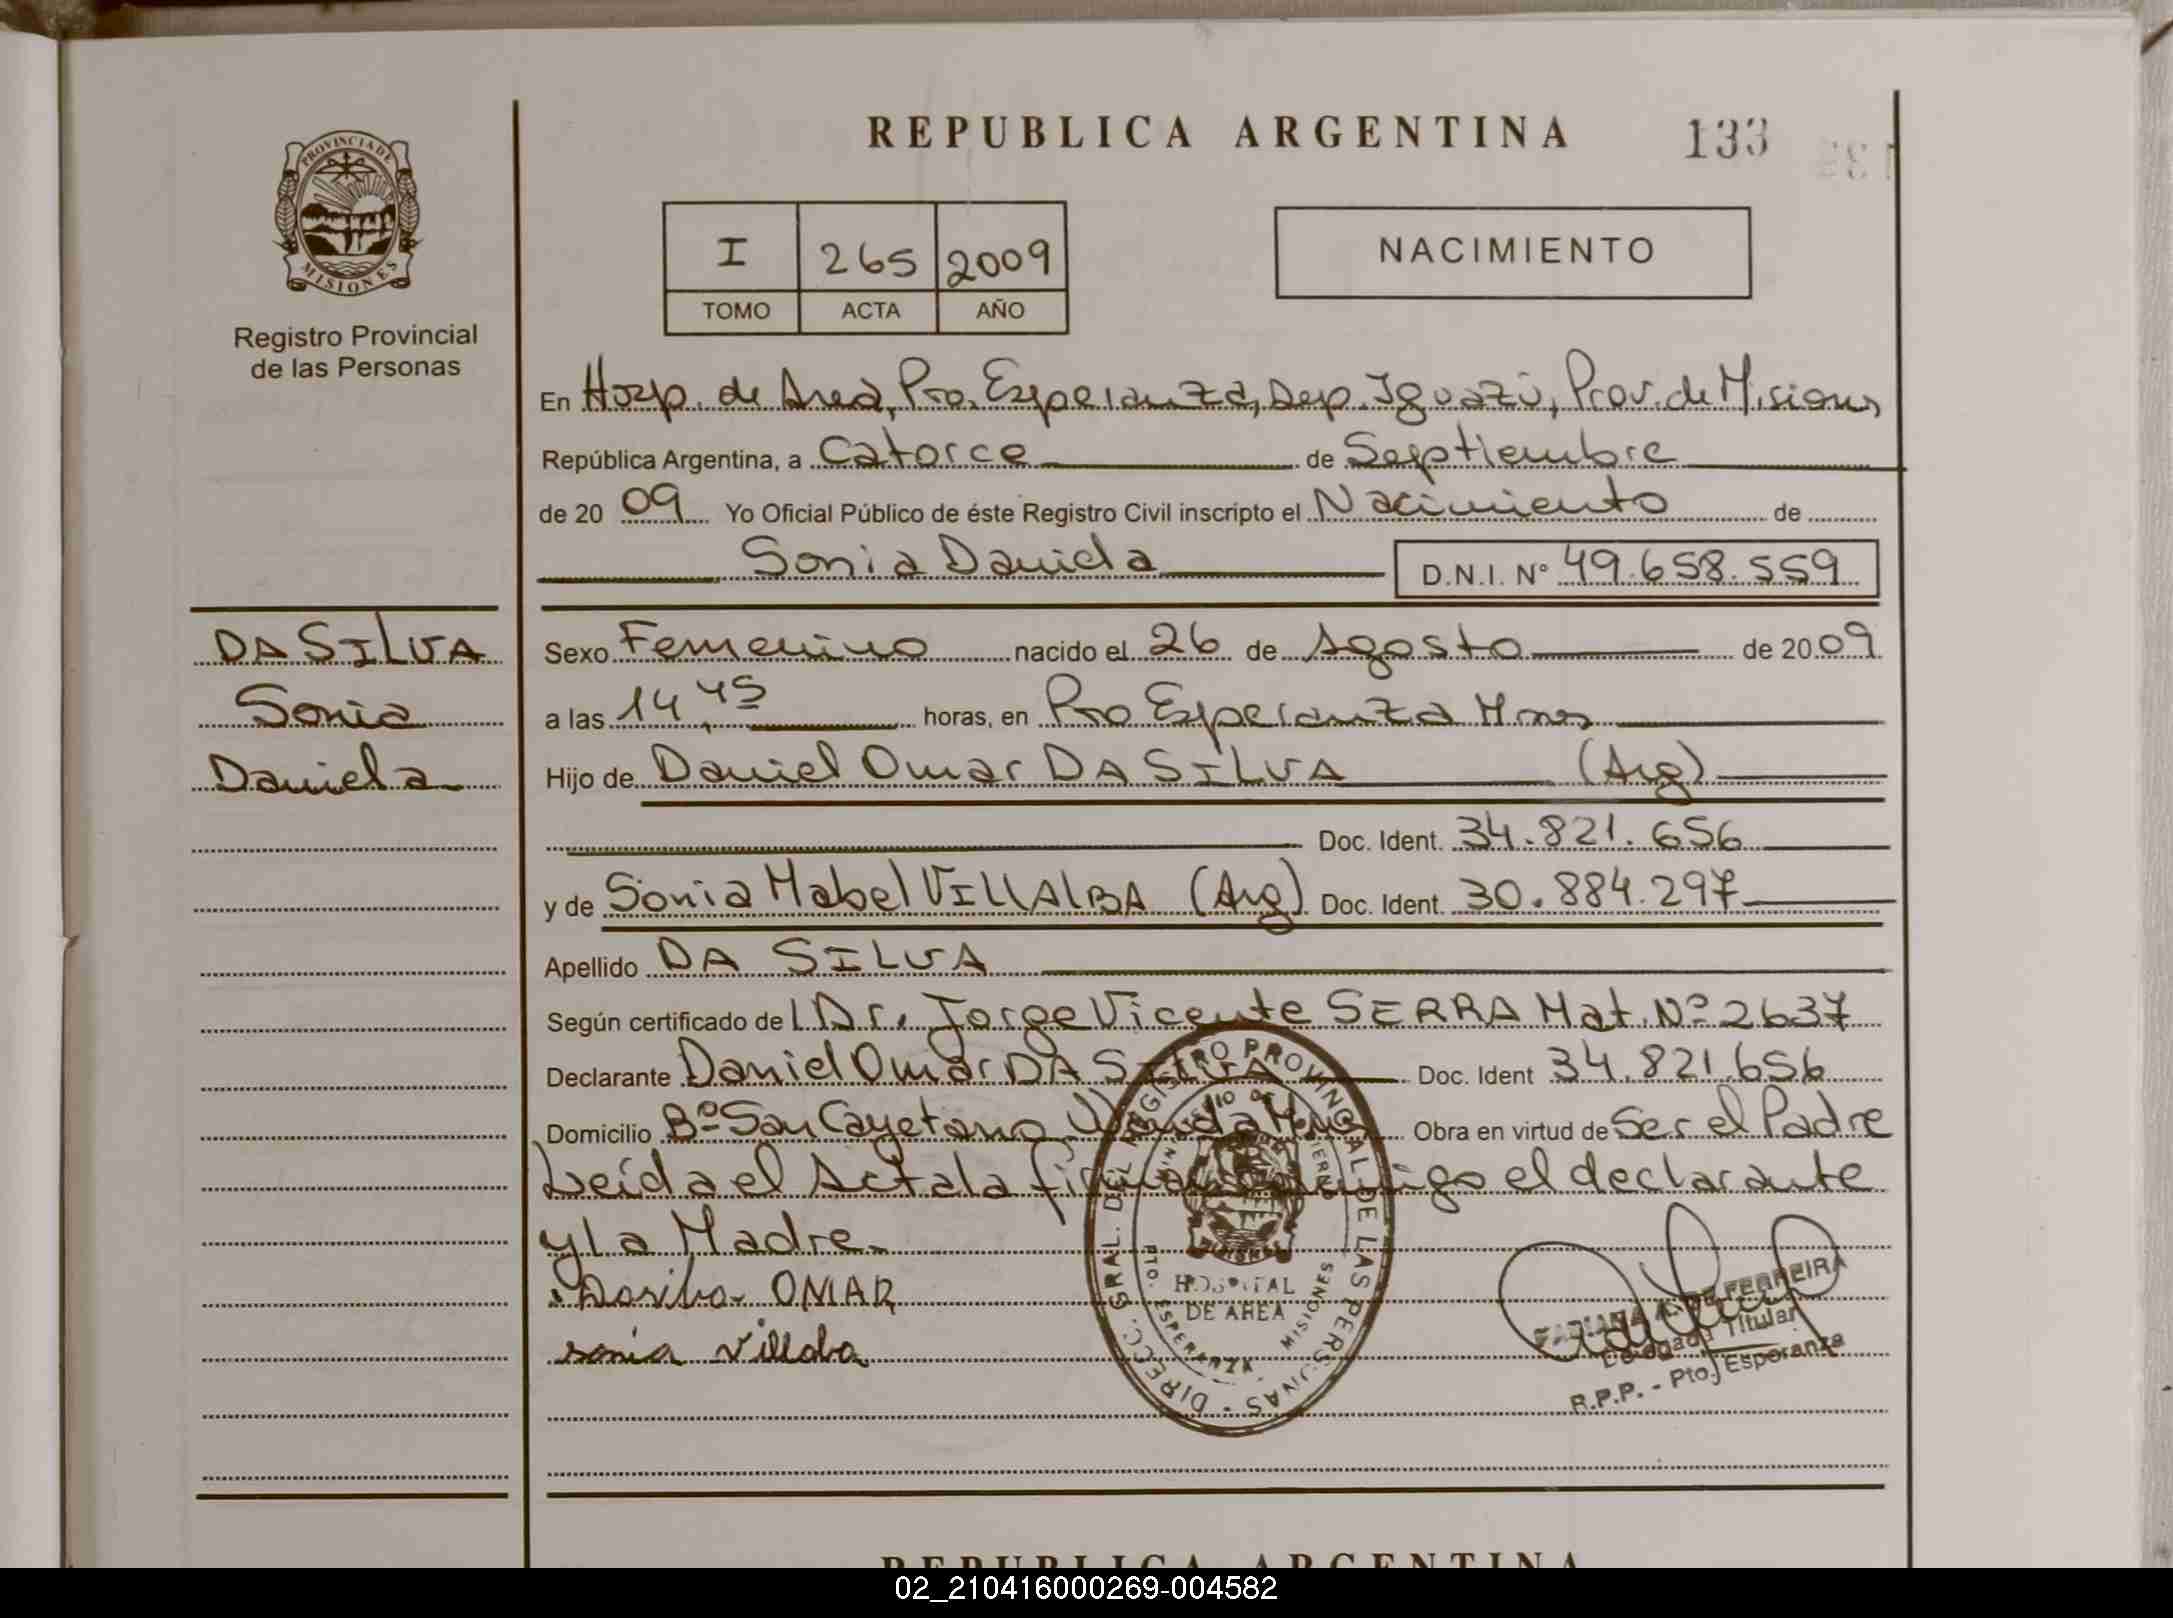 REPUBLICA ARGENTINA
133
PROVINCIA DE
MISIONES
Registro Provincial
de las Personas
I 265 2009
TOMO ACTA AÑO
NACIMIENTO
En Hosp. de Area, Pto. Esperanza, Dep. Iguazú, Prov. de Misiones
República Argentina, a Catorce de Septiembre
de 20 09 Yo Oficial Público de éste Registro Civil inscripto el Nacimiento de
Sonia Daniela D.N.I. N° 49.658.559
DA SILVA
Sonia
Daniela
Sexo Femenino nacido el 26 de Agosto de 20 09
a las 14,45 horas, en Pto Esperanza Mnes
Hijo de Daniel Omar DA SILVA (Arg)
Doc. Ident. 34.821.656
y de Sonia Mabel VILLALBA (Arg) Doc. Ident. 30.884.297
Apellido DA SILVA
Según certificado del Dr. Jorge Vicente SERRA Mat. Nº 2637
Declarante Daniel Omar DA SILVA Doc. Ident 34.821.656
Domicilio Bº San Cayetano Wanda Mnes Obra en virtud de Ser el Padre
Leida el Acta la firman conmigo el declarante
y la Madre.
Dasilva OMAR
sonia villalba
DIRECC. GRAL. DEL REGISTRO PROVINCIAL DE LAS PERSONAS
HOSPITAL
DE AREA
PTO. ESPERANZA - MISIONES
FABIANA A. DE FERREIRA
Delegada Titular
R.P.P. - Pto. Esperanza
REPUBLICA ARGENTINA
02_210416000269-004582